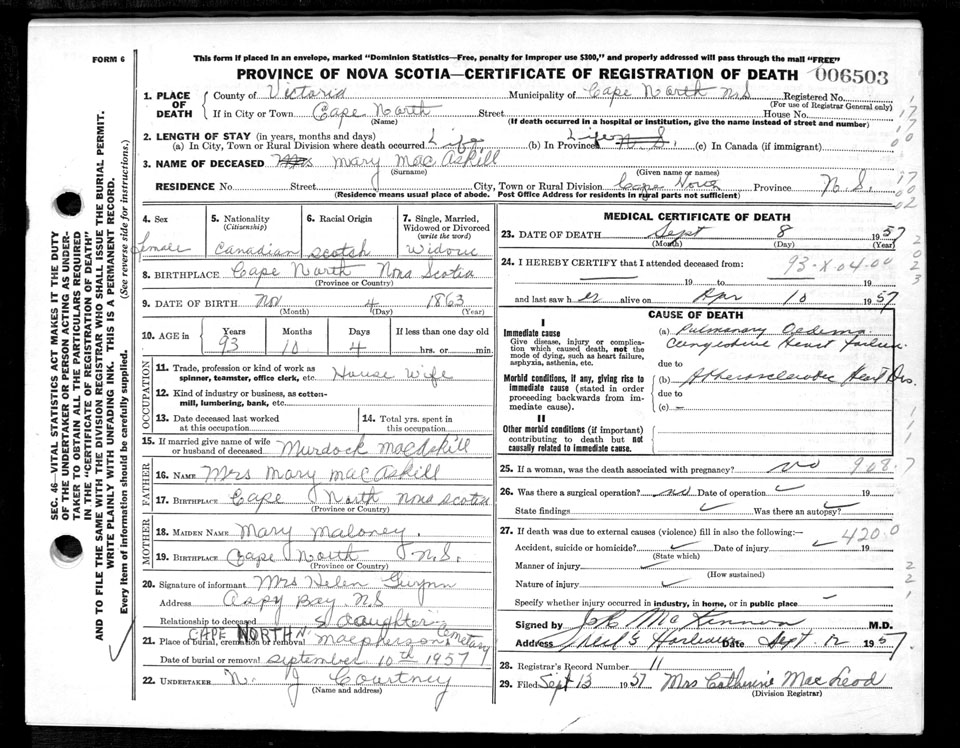 FORM 6
This form if placed in an envelope, marked "Dominion Statistics—Free, penalty for improper use $300," and properly addressed will pass through the mail "FREE"
PROVINCE OF NOVA SCOTIA—CERTIFICATE OF REGISTRATION OF DEATH 006503
1. PLACE OF DEATH
County of Victoria Municipality of Cape North N.S Registered No.
(For use of Registrar General only)
If in City or Town Cape North Street House No.
(Name) (If death occurred in a hospital or institution, give the name instead of street and number)
2. LENGTH OF STAY (in years, months and days)
(a) In City, Town or Rural Division where death occurred Life (b) In Province Life N.S. (c) In Canada (if immigrant)
3. NAME OF DECEASED Mrs Mary Mac Askill
(Surname) (Given name or names)
RESIDENCE No. Street City, Town or Rural Division Cape North Province N.S.
(Residence means usual place of abode. Post Office Address for residents in rural parts not sufficient)
SEC. 46—VITAL STATISTICS ACT MAKES IT THE DUTY
OF THE UNDERTAKER OR PERSON ACTING AS UNDER-
TAKER TO OBTAIN ALL THE PARTICULARS REQUIRED
IN THE "CERTIFICATE OF REGISTRATION OF DEATH"
AND TO FILE THE SAME WITH THE DIVISION REGISTRAR WHO SHALL ISSUE THE BURIAL PERMIT.
WRITE PLAINLY WITH UNFADING INK. THIS IS A PERMANENT RECORD.
Every item of information should be carefully supplied. (See reverse side for instructions.)
4. Sex 5. Nationality 6. Racial Origin 7. Single, Married,
(Citizenship) Widowed or Divorced
(write the word)
female Canadian scotch Widow
8. BIRTHPLACE Cape North Nova Scotia
(Province or Country)
9. DATE OF BIRTH Nov 4 1863
(Month) (Day) (Year)
10. AGE in Years Months Days If less than one day old
93 10 4 hrs. or min.
OCCUPATION
11. Trade, profession or kind of work as
spinner, teamster, office clerk, etc. House Wife
12. Kind of industry or business, as cotton-
mill, lumbering, bank, etc.
13. Date deceased last worked
at this occupation
14. Total yrs. spent in
this occupation
15. If married give name of wife
or husband of deceased Murdock MacAskill
FATHER
16. NAME Mrs Mary Mac Askill
17. BIRTHPLACE Cape North Nova Scotia
(Province or Country)
MOTHER
18. MAIDEN NAME Mary Maloney.
19. BIRTHPLACE Cape North N.S.
(Province or Country)
20. Signature of informant Mrs Helen Gwynn
Address Aspy Bay N S
Relationship to deceased daughter
CAPE NORTH N
21. Place of burial, cremation or removal Macpherson Cemetary
Date of burial or removal September 10th 1957
22. UNDERTAKER N. J Courtney
(Name and address)
MEDICAL CERTIFICATE OF DEATH
23. DATE OF DEATH Sept 8 1957
(Month) (Day) (Year)
24. I HEREBY CERTIFY that I attended deceased from: 93-X 04.00
19 to 19
and last saw h er alive on Apr 10 1957
CAUSE OF DEATH
I
Immediate cause
Give disease, injury or complica-
tion which caused death, not the
mode of dying, such as heart failure,
asphyxia, asthenia, etc.
(a) Pulmonary Oedema
Congestive Heart Failure
due to
Morbid conditions, if any, giving rise to
immediate cause (stated in order
proceeding backwards from im-
mediate cause).
(b) Atherosclerotic Heart Dis.
due to
(c)
II
Other morbid conditions (if important)
contributing to death but not
causally related to immediate cause.
25. If a woman, was the death associated with pregnancy? no 908.7
26. Was there a surgical operation? no Date of operation 19
State findings Was there an autopsy?
27. If death was due to external causes (violence) fill in also the following: 420.0
Accident, suicide or homicide? Date of injury 19
(State which)
Manner of injury
(How sustained)
Nature of injury
Specify whether injury occurred in industry, in home, or in public place
Signed by Mac Kinnon M.D.
Address Neil's Harbour Date Sept. 12 1957
28. Registrar's Record Number 11
29. Filed Sept 13 1957 Mrs Catherine Mac Leod
(Division Registrar)